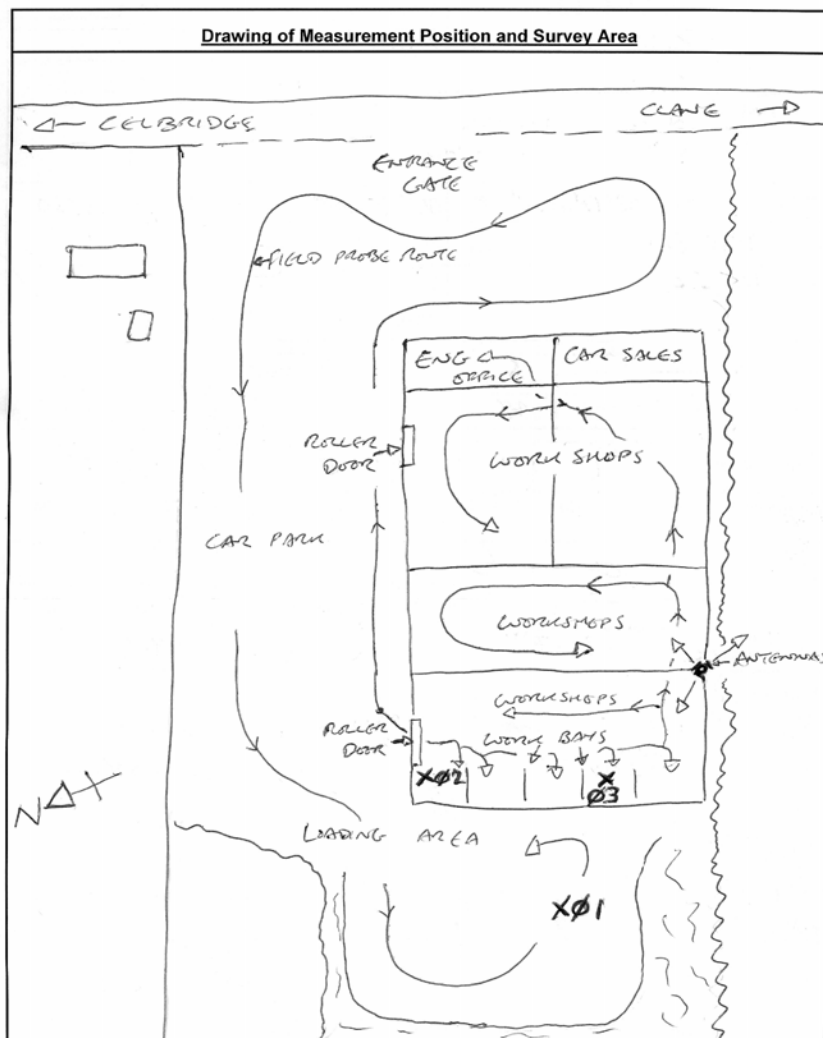 Drawing of Measurement Position and Survey Area
CELBRIDGE
CLANE
ENTRANCE
GATE
FIELD PROBE ROUTE
ENG
OFFICE
CAR SALES
ROLLER
DOOR
WORK SHOPS
CAR PARK
WORKSHOPS
ANTENNAS
WORKSHOPS
ROLLER
DOOR
WORK BAYS
XØ2
X
Ø3
N
LOADING AREA
XØ1